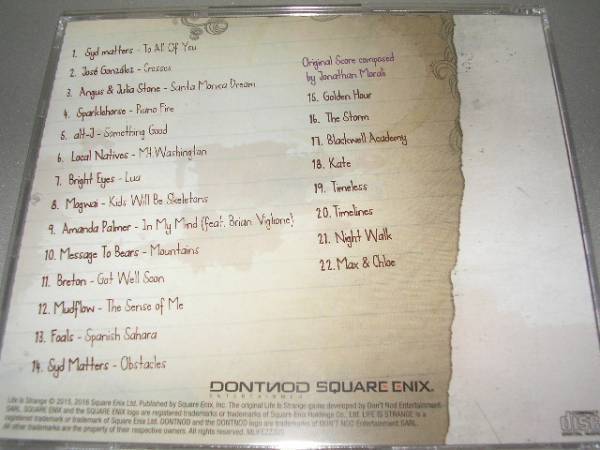 1. Syd matters - To All Of You
2. José González - Crosses
3. Angus & Julia Stone - Santa Monica Dream
4. Sparklehorse - Piano Fire
5. alt-J - Something Good
6. Local Natives - Mt Washington
7. Bright Eyes - Lua
8. Mogwai - Kids Will Be Skeletons
9. Amanda Palmer - In My Mind (feat. Brian Viglione)
10. Message To Bears - Mountains
11. Breton - Got Well Soon
12. Mudflow - The Sense of Me
13. Foals - Spanish Sahara
14. Syd Matters - Obstacles
Original Score composed
by Jonathan Morali
15. Golden Hour
16. The Storm
17. Blackwell Academy
18. Kate
19. Timeless
20. Timelines
21. Night Walk
22. Max & Chloe
DONTNOD SQUARE ENIX.
ENTERTAINMENT
Life is Strange © 2015, 2016 Square Enix Ltd. Published by Square Enix, Inc. The original Life is Strange game developed by Don't Nod Entertainment
SARL. SQUARE ENIX and the SQUARE ENIX logo are registered trademarks or trademarks of Square Enix Holdings Co., Ltd. LIFE IS STRANGE is a
registered trademark or trademark of Square Enix Ltd. DONTNOD and the DONTNOD logo are trademarks of DON'T NOD Entertainment SARL.
All other trademarks are the property of their respective owners. All rights reserved.